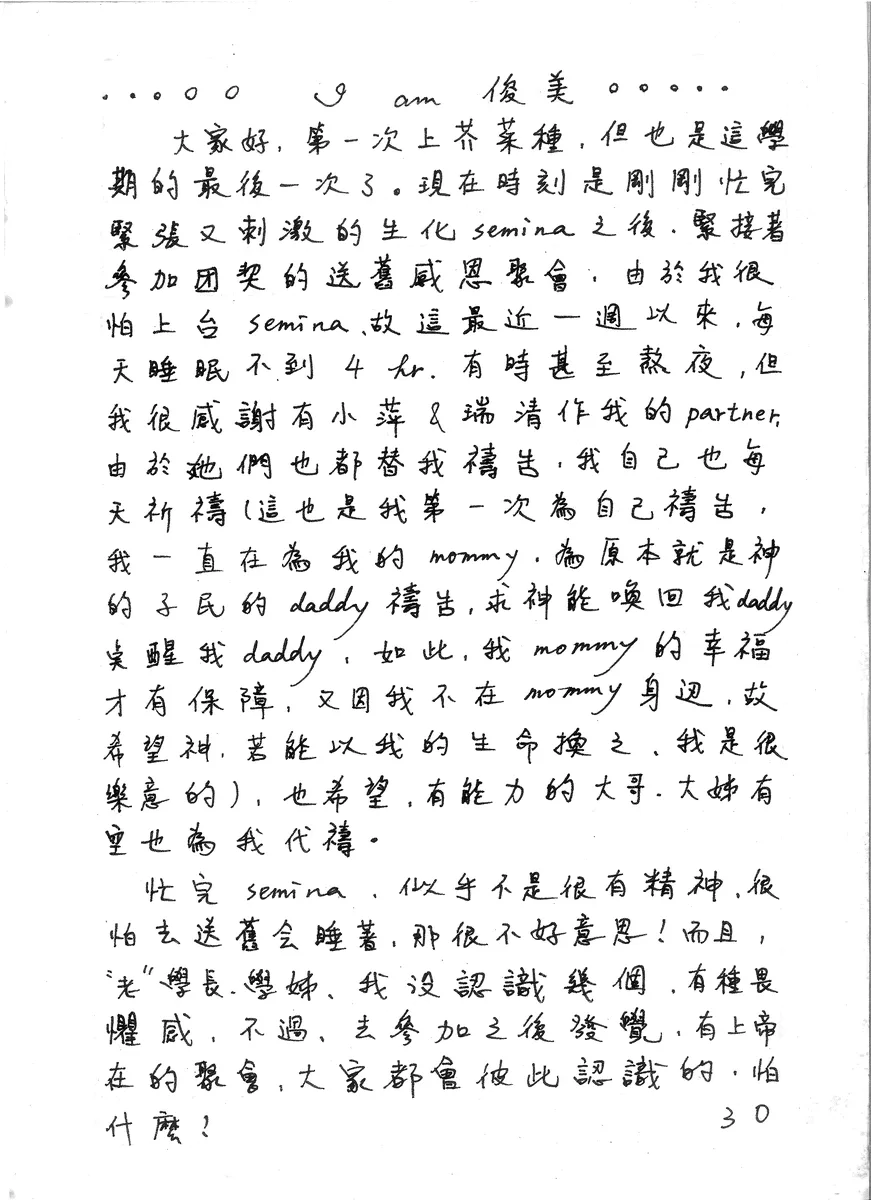 ...○○ I am 俊美 ○○...
大家好，第一次上芥菜種，但也是這學
期的最後一次了。現在時刻是剛剛忙完
緊張又刺激的生化semina之後．緊接著
參加团契的送舊感恩聚會，由於我很
怕上台semina、故這最近一週以來，每
天睡眠不到4 hr. 有時甚至熬夜，但
我很感謝有小萍&瑞清作我的partner,
由於她們也都替我禱告，我自己也每
天祈禱(這也是我第一次為自己禱告，
我一直在為我的mommy．為原本就是神
的子民的daddy禱告，求神能喚回我daddy
奐醒我daddy，如此，我mommy的幸福
才有保障，又因我不在mommy身边，故
希望神，若能以我的生命換之、我是很
樂意的)，也希望，有能力的大哥．大姊有
空也為我代禱。
忙完semina，似乎不是很有精神、很
怕去送舊会睡著，那很不好意思！而且，
"老"學長．學姊、我没認識幾個，有種畏
懼感，不過、去參加之後發覺，有上帝
在的聚會，大家都會彼此認識的，怕
什麼！
30